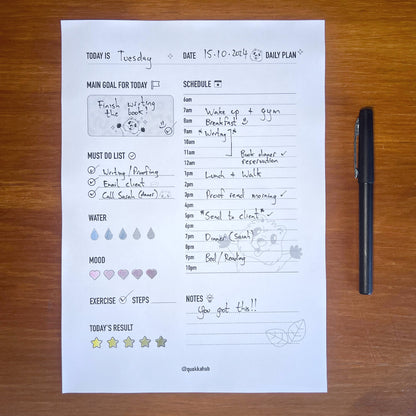 TODAY IS Tuesday DATE 15.10.2024 DAILY PLAN
MAIN GOAL FOR TODAY
Finish writing
the book!
MUST DO LIST
Writing/Proofing
Email client
Call Sarah (dinner)
WATER
MOOD
EXERCISE STEPS
TODAY'S RESULT
SCHEDULE
6am
7am Wake up + gym
8am Breakfast
9am *Writing*
10am
11am Book dinner
12am reservation
1pm Lunch + Walk
2pm
3pm Proof read morning
4pm
5pm *Send to client*
6pm
7pm Dinner (Sarah)
8pm
9pm Bed/Reading
10pm
NOTES
You got this!!
@quokkahub